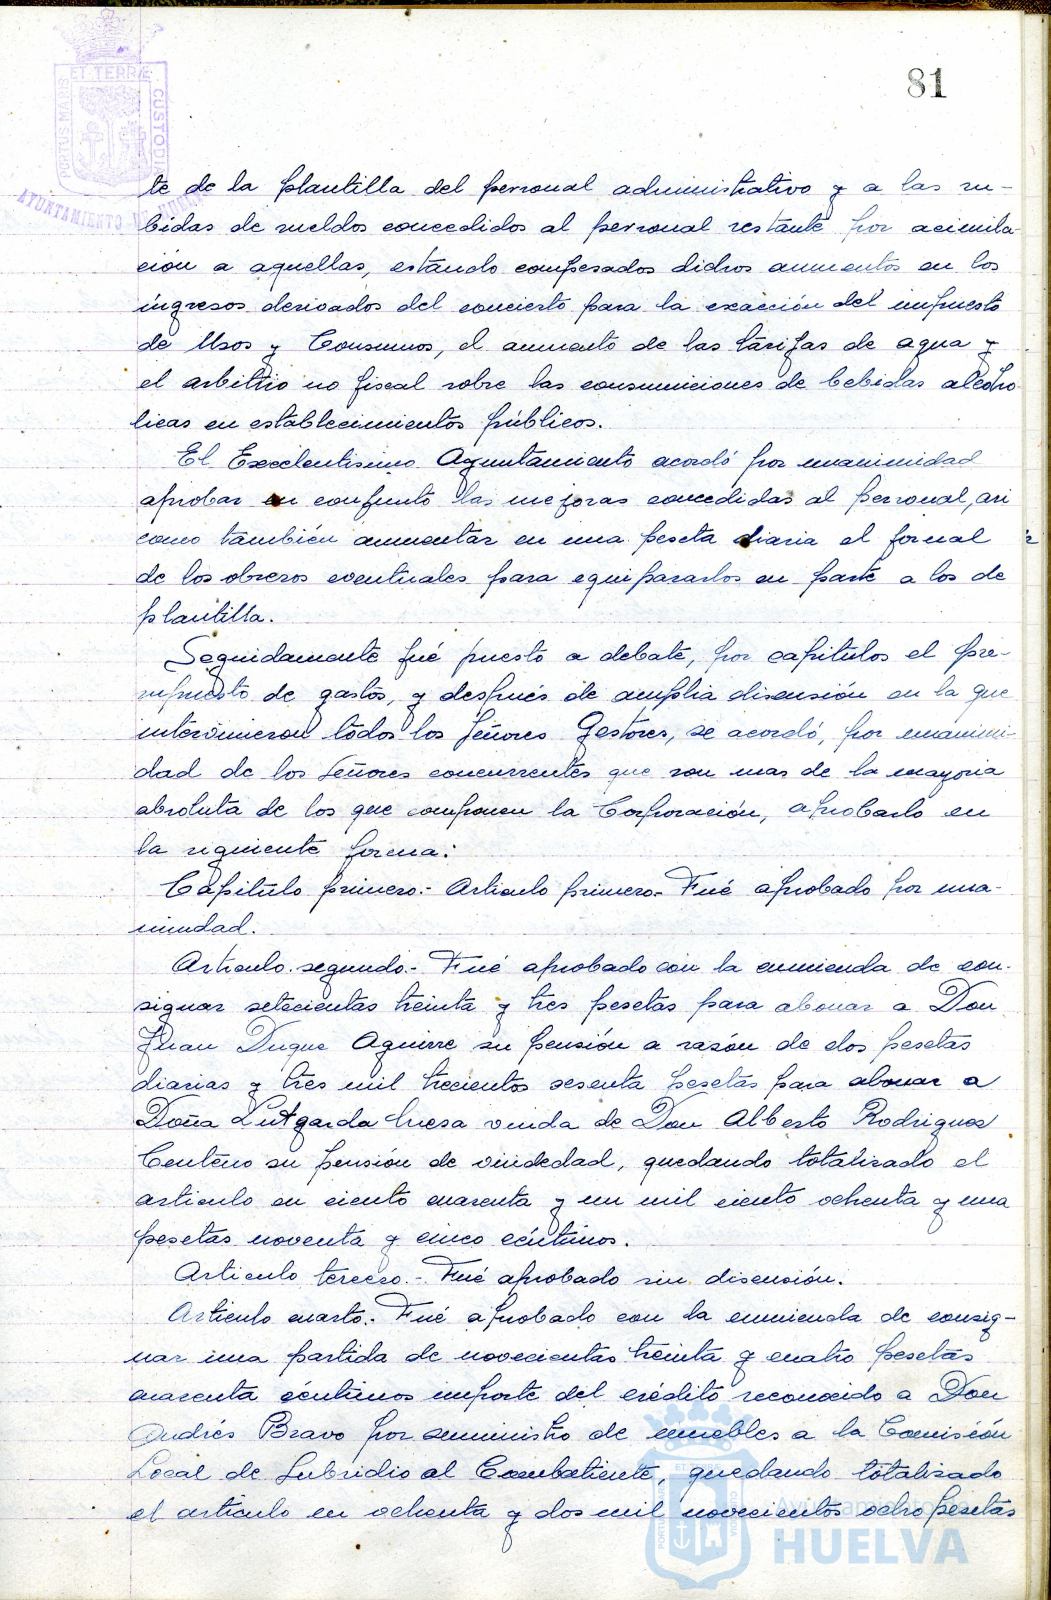 81
PORTUS MARIS ET TERRÆ CUSTODIA
AYUNTAMIENTO DE HUELVA
te de la plantilla del personal administrativo y a las su-
bidas de sueldos concedidos al personal restante por acimila-
ción a aquellas, estando compesados dichos aumentos en los
ingresos derivados del concierto para la exacción del impuesto
de Usos y Consumos, el aumento de las tarifas de agua y
el arbitrio no fiscal sobre las consumiciones de bebidas alcoho
licas en establecimientos públicos.
El Excelentisimo Ayuntamiento acordó por unanimidad
aprobar en conjunto las mejoras concedidas al personal, asi
como también aumentar en una peseta diaria el jornal
de los obreros eventuales para equipararlos en parte a los de
plantilla.
Seguidamente fué puesto a debate, por capitulos el pre-
supuesto de gastos, y después de amplia discusión en la que
intervinieron todos los Señores Gestores, se acordó, por unanimi-
dad de los Señores concurrentes que son mas de la mayoria
absoluta de los que componen la Corporación, aprobarlo en
la siguiente forma:
Capitulo primero.- Articulo primero.- Fué aprobado por una-
nimidad.
Articulo segundo.- Fué aprobado con la enmienda de con-
signar setecientas treinta y tres pesetas para abonar a Don
Juan Duque Aguirre su pensión a razón de dos pesetas
diarias y tres mil trecientos sesenta pesetas para abonar a
Doña Lutgarda viuda de Don Alberto Rodriguez
Centeno su pensión de viudedad, quedando totalizado el
articulo en ciento cuarenta y un mil ciento ochenta y una
pesetas noventa y cinco céntimos.
Articulo tercero.- Fué aprobado sin discusión.
Articulo cuarto.- Fué aprobado con la enmienda de consig-
nar una partida de novecientas treinta y cuatro pesetas
cuarenta céntimos importe del crédito reconocido a Don
Andrés Bravo por suministro de muebles a la Comisión
Local de Subsidio al Combatiente, quedando totalizado
el articulo en ochenta y dos mil novecientos ocho pesetas
Ayuntamiento de
HUELVA